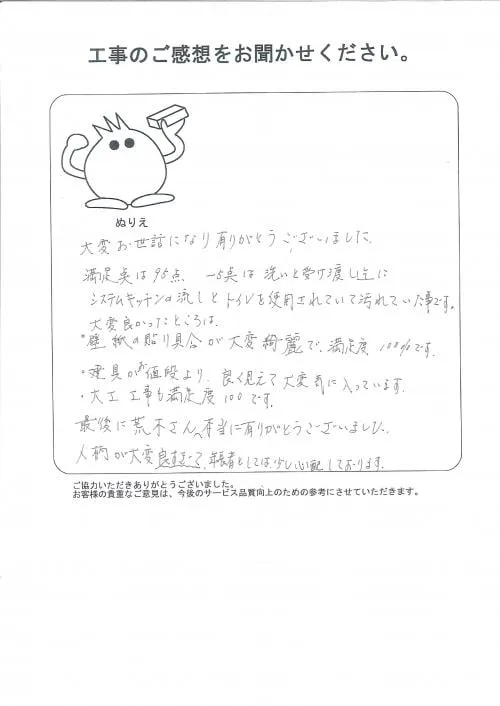 工事のご感想をお聞かせください。
ぬりえ
大変お世話になり有りがとうございました。
満足点は95点 -5点は 洗いと受け渡し
システムキッチンの流しとトイレを使用されていて汚れていた事です。
大変良かったところは、
・壁紙の貼り具合が大変綺麗で、満足度100%です。
・建具がお値段より、良く見えて大変気に入っています。
・大工工事も満足度100です。
最後に荒木さん、本当に有りがとうございました。
人柄が大変良すぎて、年長者としては少し心配しております。
ご協力いただきありがとうございました。
お客様の貴重なご意見は、今後のサービス品質向上のための参考にさせていただきます。